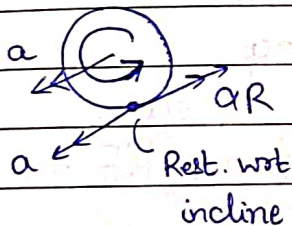 a
αR
a
Rest. wrt
incline